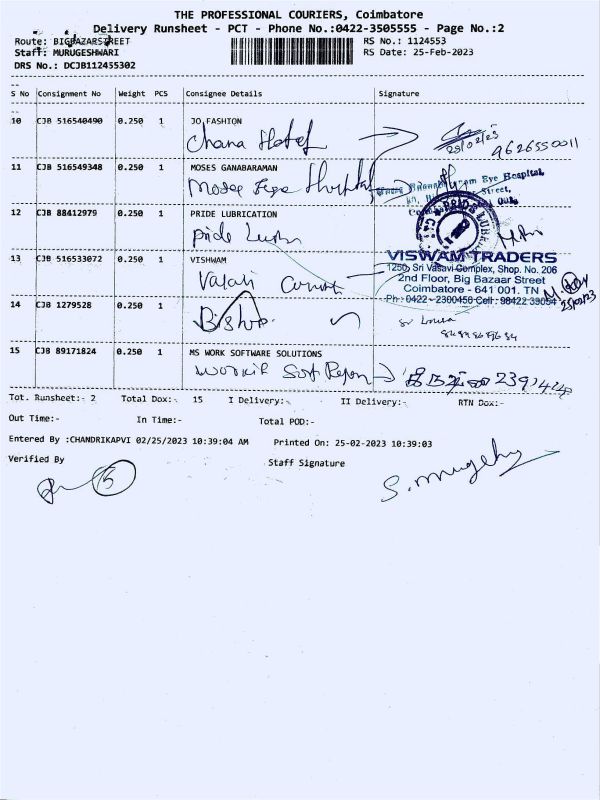 THE PROFESSIONAL COURIERS, Coimbatore
Delivery Runsheet - PCT - Phone No.:0422-3505555 - Page No.:2
Route: BIGBAZARSTREET
RS No.: 1124553
Staff: MURUGESHWARI
RS Date: 25-Feb-2023
DRS No.: DCJB112455302
S No Consignment No Weight PCS Consignee Details Signature
10 CJB 516540490 0.250 1 JO FASHION
Chana Hotel
25/02/23
9626550011
11 CJB 516549348 0.250 1 MOSES GANABARAMAN
Moses Eye Hospital
Eye Hospital
Street,
12 CJB 88412979 0.250 1 PRIDE LUBRICATION
Pride Lubri
13 CJB 516533072 0.250 1 VISHWAM
VISWAM TRADERS
1250, Sri Vasavi Complex, Shop. No. 206
2nd Floor, Big Bazaar Street
Coimbatore - 641 001. TN
Ph: 0422 - 2300456 Cell: 98422 39054
14 CJB 1279528 0.250 1
Bishop
15 CJB 89171824 0.250 1 MS WORK SOFTWARE SOLUTIONS
Tot. Runsheet:- 2 Total Dox:- 15 I Delivery:- II Delivery:- RTN Dox:-
Out Time:- In Time:- Total POD:-
Entered By :CHANDRIKAPVI 02/25/2023 10:39:04 AM Printed On: 25-02-2023 10:39:03
Verified By Staff Signature
15
S. Murugeshwari